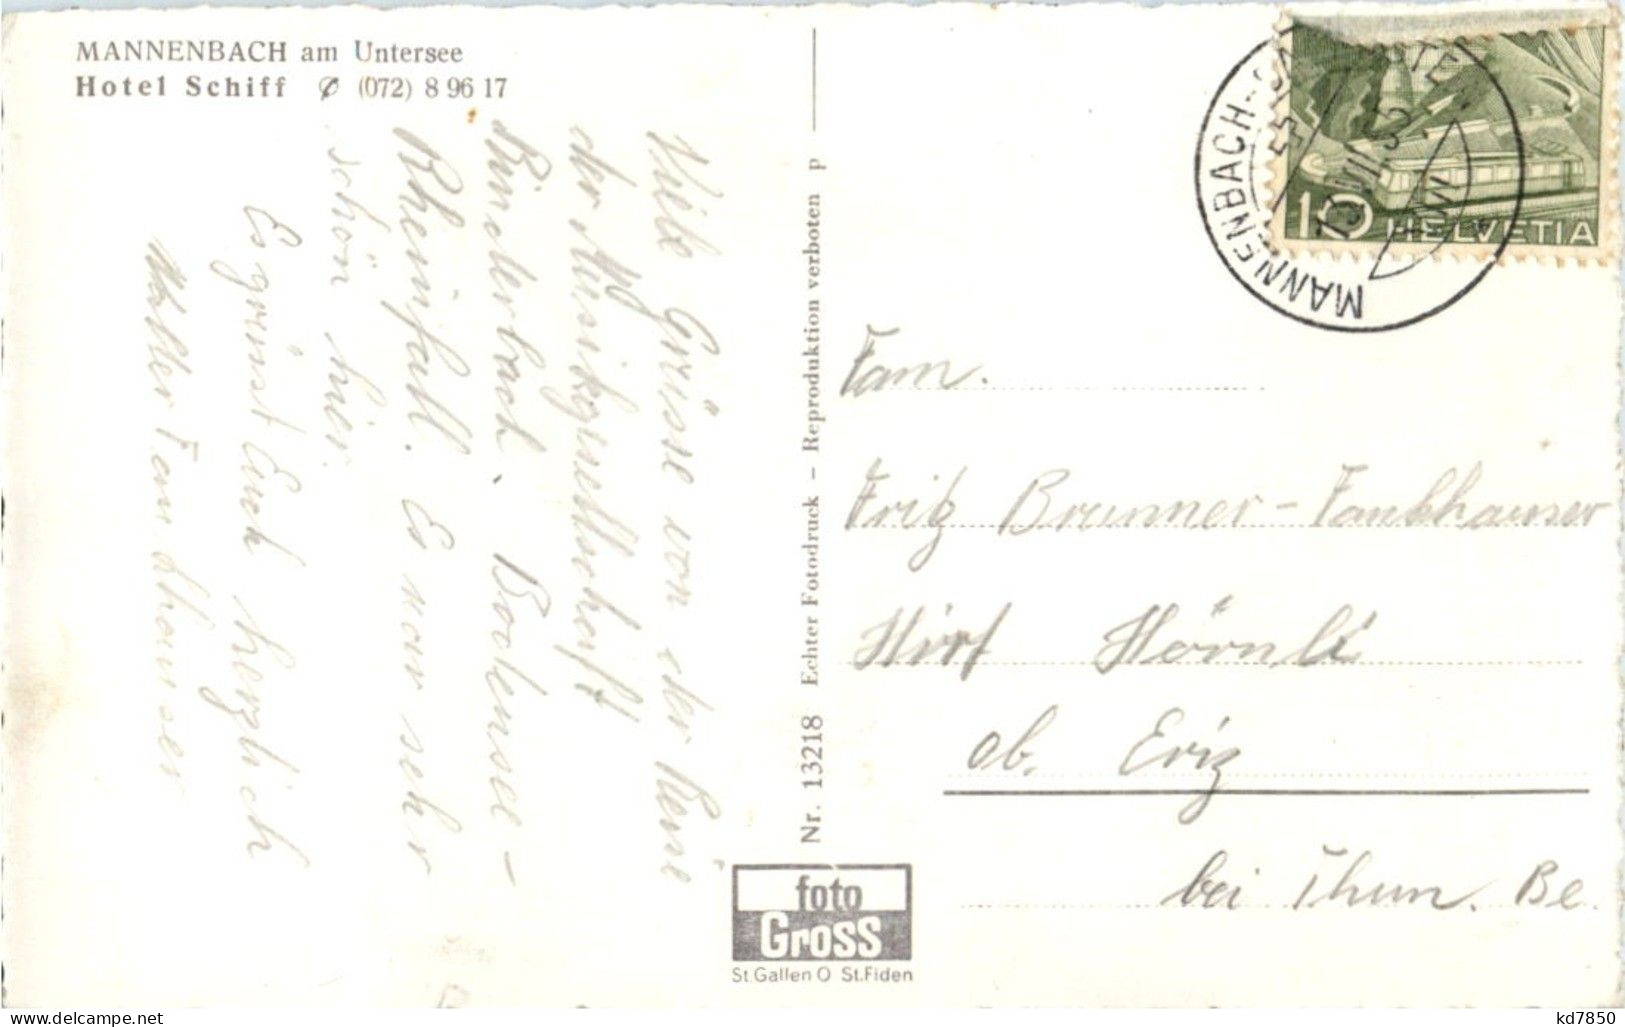 MANNENBACH am Untersee
Hotel Schiff ✆ (072) 8 96 17
Viele Grüsse von der Reise
der Musikgesellschaft
Bodensee-
Rheinfall. Es war sehr
schön hier.
Es grüsst Euch herzlich
Fam. Fankhauser
Nr. 13218 Echter Fotodruck – Reproduktion verboten p
foto
Gross
St.Gallen O St.Fiden
MANNENBACH-
10 HELVETIA
Fam.
Fritz Brunner-Fankhauser
Hörnli
ob. Eriz
bei Thun. Be.
kd7850